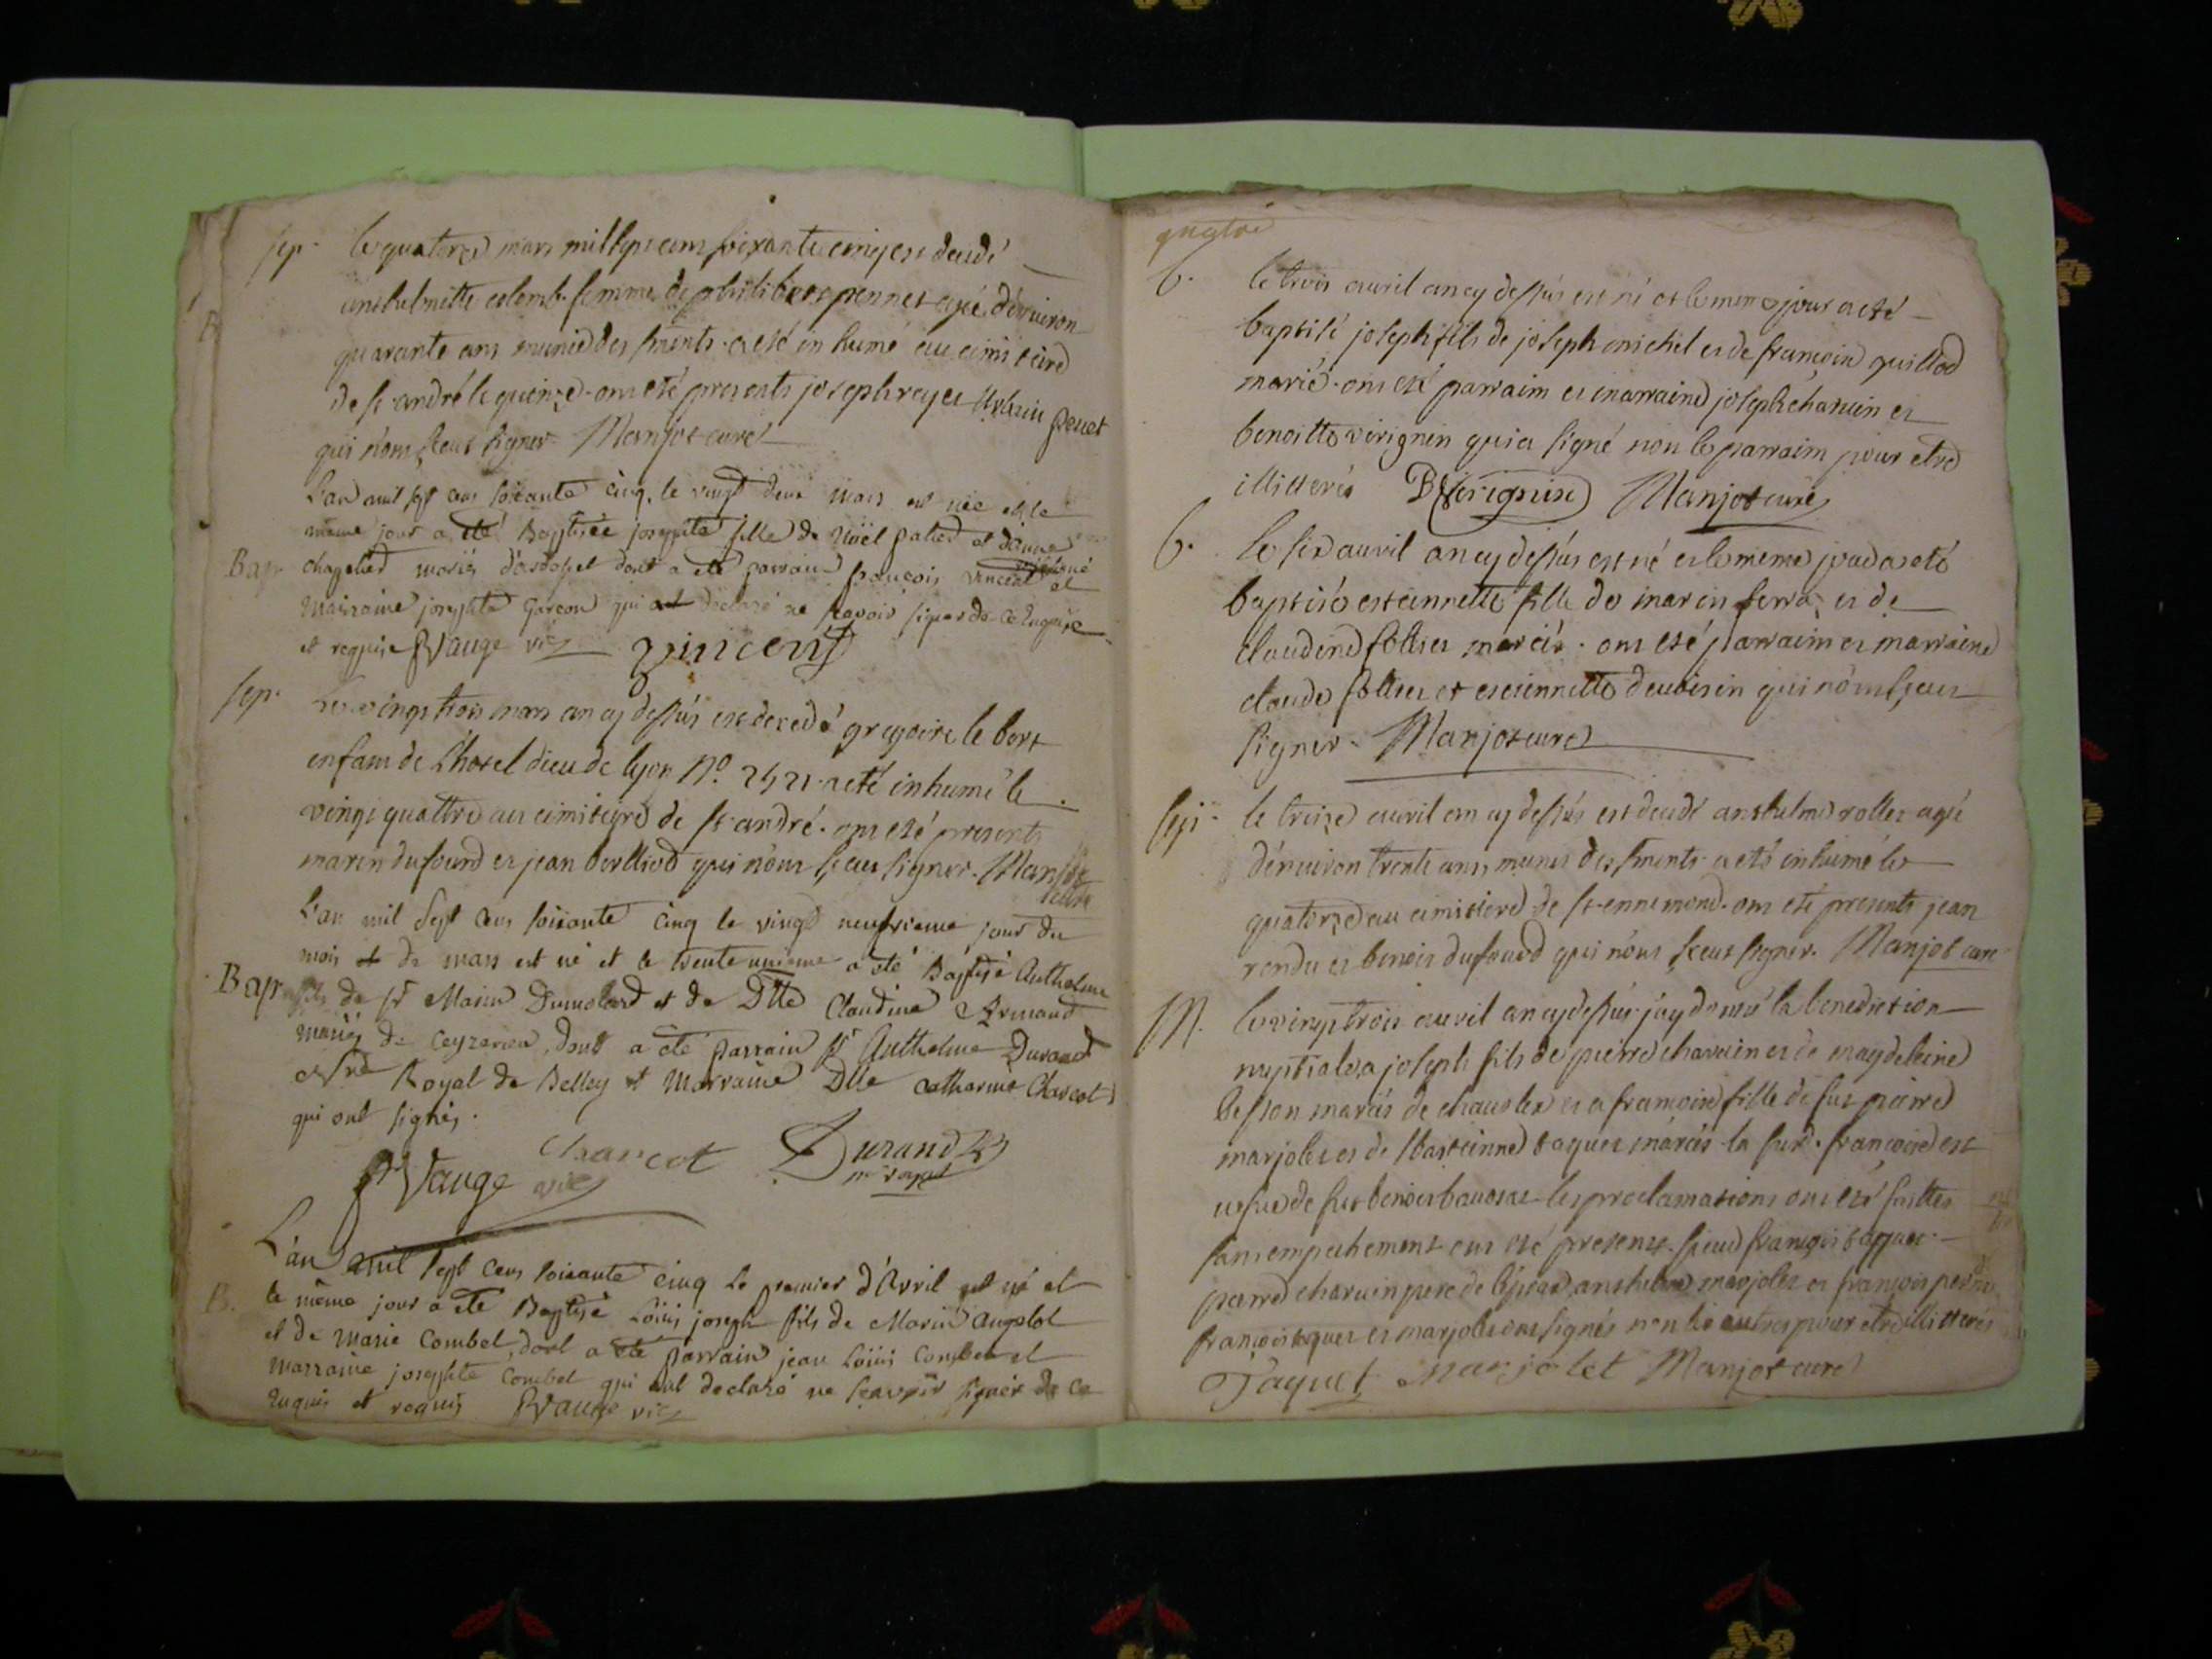 sep. le quatorze mars mil sept cent soixante cinq est decedé
anthelmette colomb femme de philibert pennet agé d'environ
quarante ans munie des sments a eté inhumé au cimitiere
de st andré le quinze ont eté presents joseph rey et
qui n'ont sceut signer Manjot curé
L'an mil sept cens soixante cinq, le vingt deux mars est née et le
même jour a été Baptisée josephte fille de Noël et
Bap. mariés dont a ete parrain françois vincent et
Marraine josephte garçon qui ont declaré ne scavoir signer de ce enquise
et requise Vauge vic vincent
sep. Le vingt trois mars an cy dessus est decedé gregoire le bort
enfant de L'hotel dieu de lyon N.º a eté inhumé le
vingt quattre au cimitiere de st andré ont eté presents
marin dufourd et jean qui n'ont sceu signer. Manjot
curé
L'an mil sept cens soixante cinq le vingt neufvieme jour du
mois de mars est né et le trente unieme a été Baptisé Anthelme
Bap. fils de sr Marin Dumolard et de Dlle Claudine Armand
mariés de Ceyzerieu, dont a été parrain sr Anthelme Durand
Royal de Belley et Marraine Dlle Catharine Charcot
qui ont signés.
Charcot Durand
Vauge vic
L'an mil sept cens soixante cinq le premier d'Avril est né et
B. le même jour a eté Baptisé Loüis joseph fils de Marin
et de Marie Combet, dont a eté parrain jean Loüis Combet et
marraine josephte Combet qui ont declaré ne scavoir signer de ce
enquis et requis Vauge vic
quatre
b. le trois avril an cy dessus est né et le meme jour a eté
baptisé joseph fils de joseph michel et de françoise guillod
marié ont eté parraim et marraine joseph charvin et
benoitte virignin qui a signé non le parraim pour etre
illitterés B Virignin Manjot curé
b. le six avril an cy dessus est né et le meme jour a eté
baptisé estiennette fille de marin ferra et de
claudine mariés. ont eté parraim et marraine
claude et estiennette deuvisin qui n'ont sceu
signer. Manjot curé
sep. le treize avril an cy dessus est decedé anthelme rollet agé
d'environ trente ans, munis des sments a eté inhumé le
quatorze au cimitiere de st ennemond. ont eté presents jean
rendu et benoit dufourd qui n'ont sceut signer. Manjot curé
M. le vingt trois avril an cy dessus j'ay donné la benediction
nuptiale a joseph fils de pierre charvin et de magdeleine
besson mariés de et a françoise fille de fut pierre
marjolet et de taquet mariés la susd. françoise est
vefve de fut benoit les proclamations ont eté faittes
sans empechement ont eté presents. sieur françois taquet
pierre charvin pere de l'epoux anthelme marjolet et françois
françois taquet et marjolet ont signés non les autres pour etre illitterés
Taquet marjolet Manjot curé